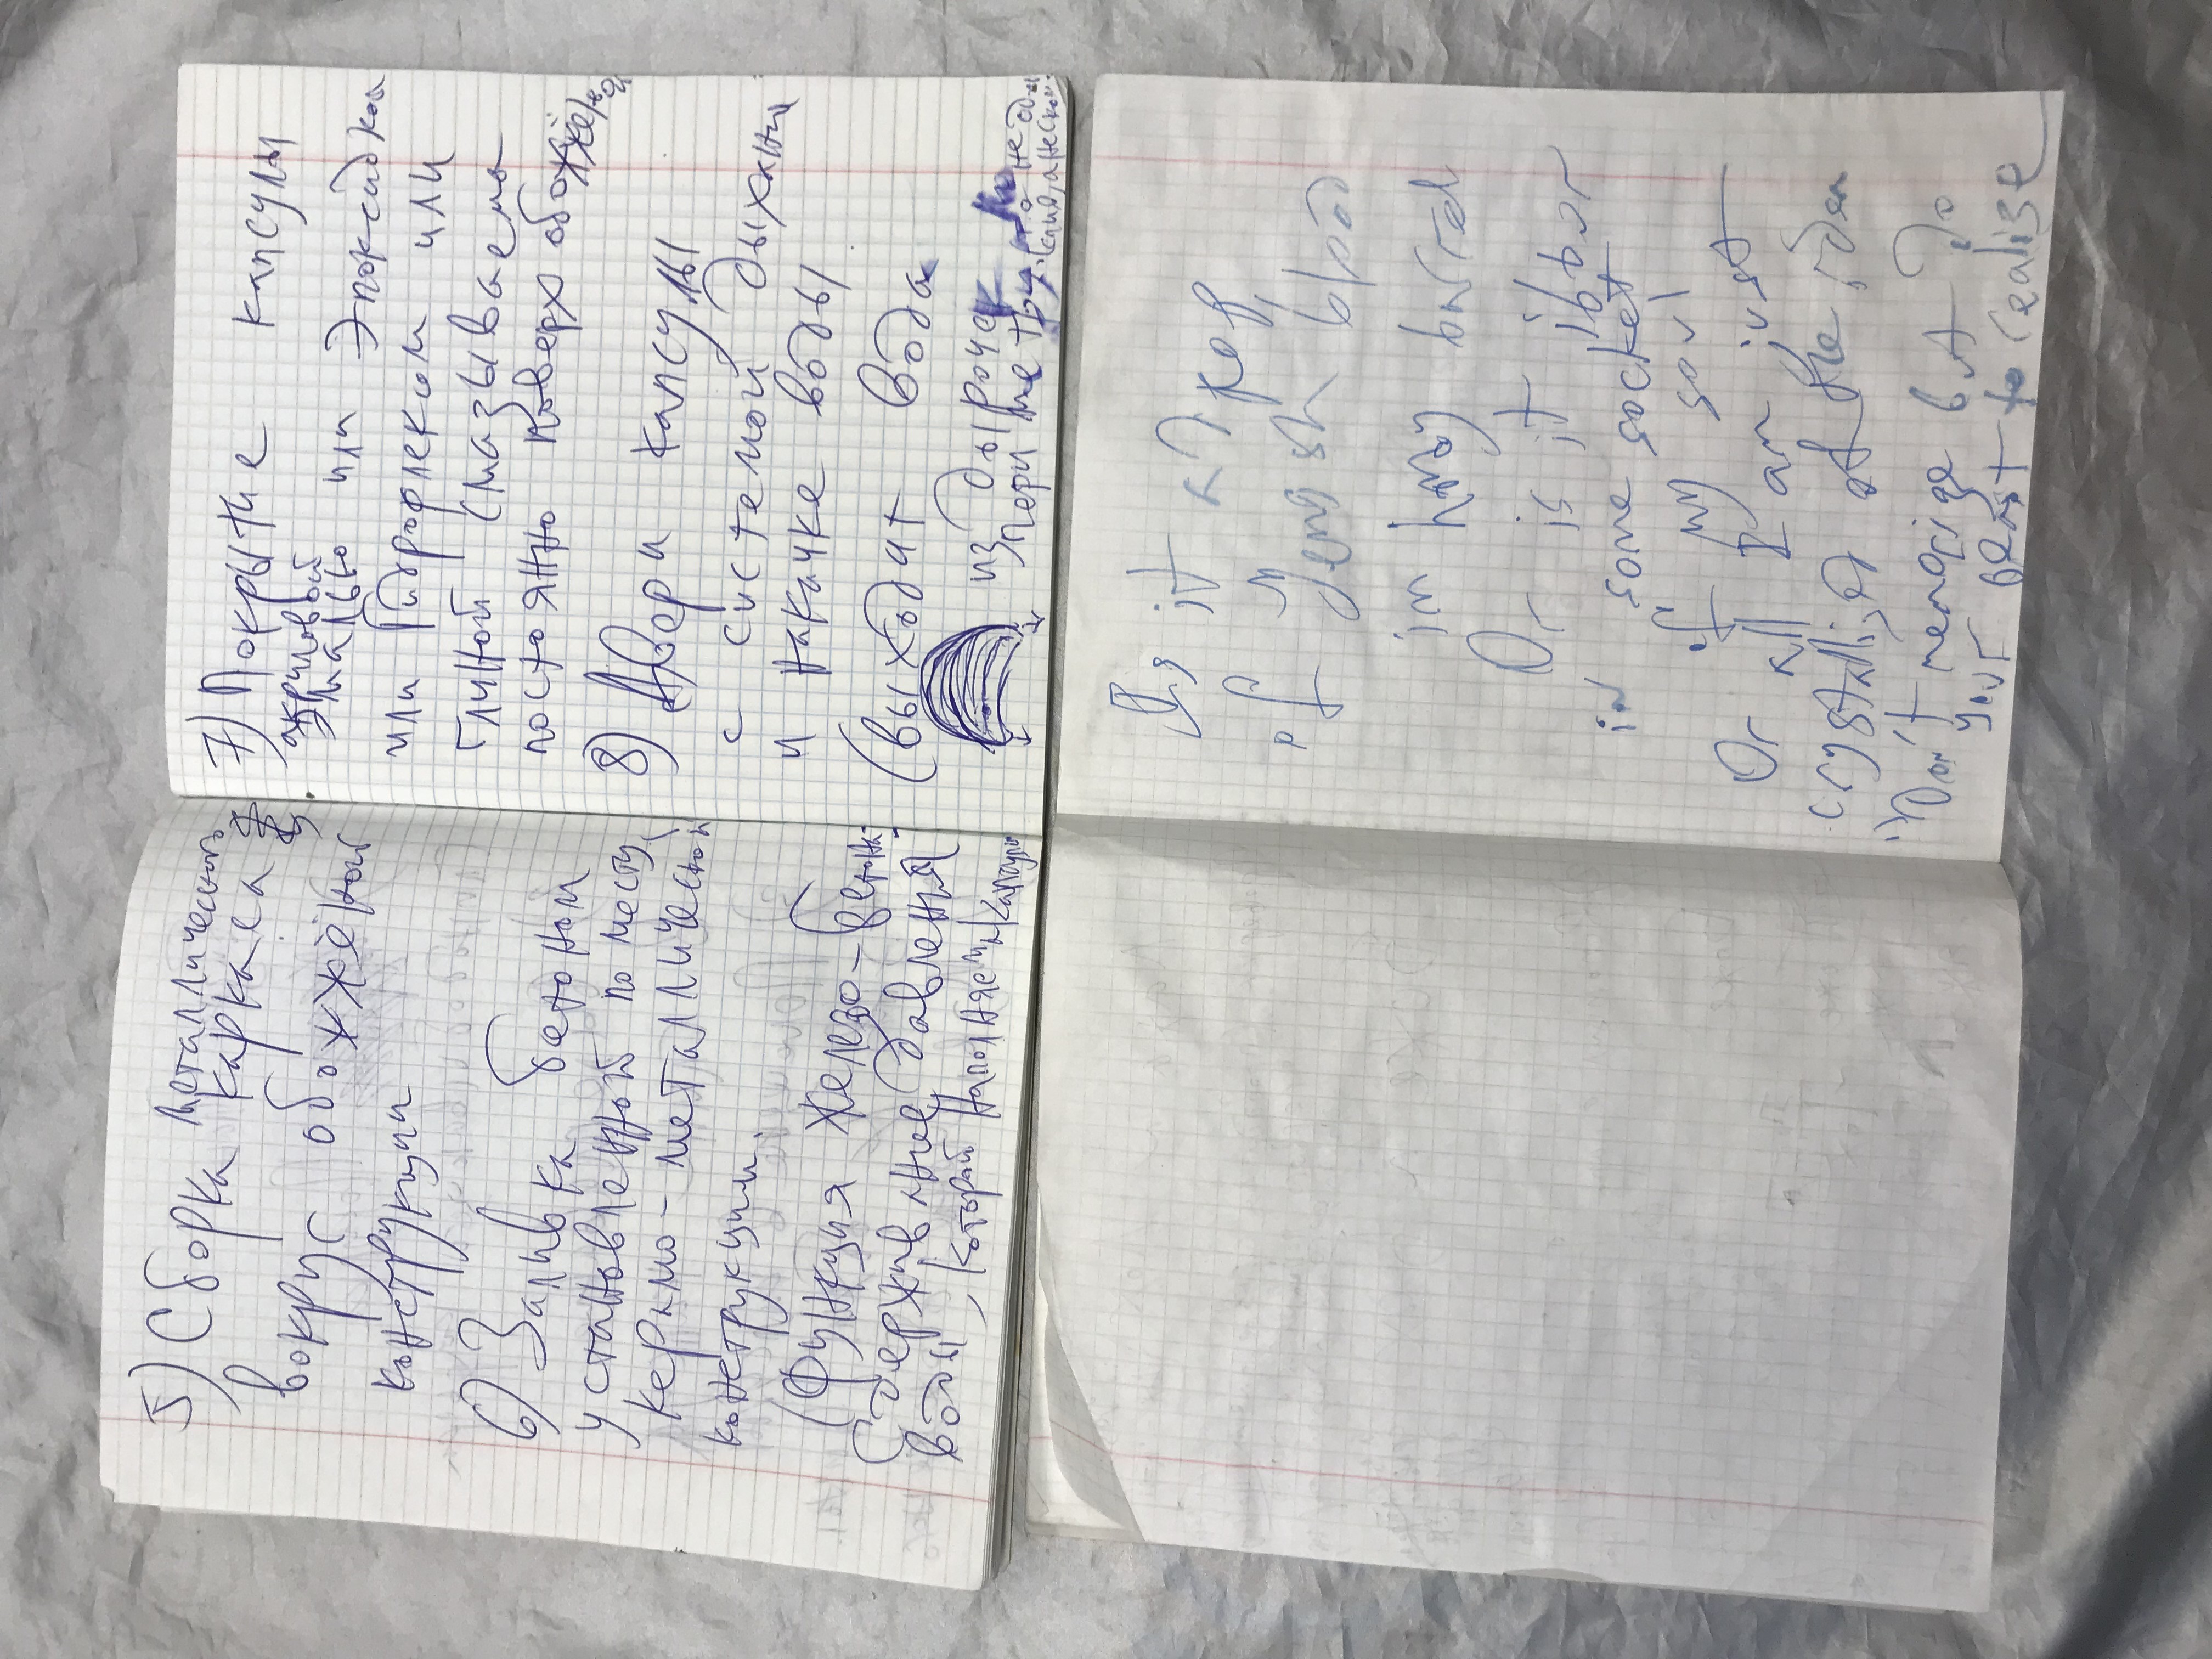 5) Сборка металлического
каркаса
вокруг обожжёной
конструкции
6) Заливка бетоном
установленной по месту,
керамо-металлической
конструкции.
(Функция железо-бетона-
Сдерживание давления
воды, которой наполняем капсулу
7) Покрытие капсулы
акриловой
эмалью или Эпоксидкой
или Гидрофлексом или
глиной смазываемо
постоянно поверх обожжёной
8) Двери капсулы
с системой дыхания
и накачке воды
(выходит вода
из дырочек по
периметру. не од
а неск
Is it a drop
of blood
in honey barrel
Or is it
in some socket
of my soul
Or all I am just
crystallized of the idea
Don't memorize but do
your beast to realise